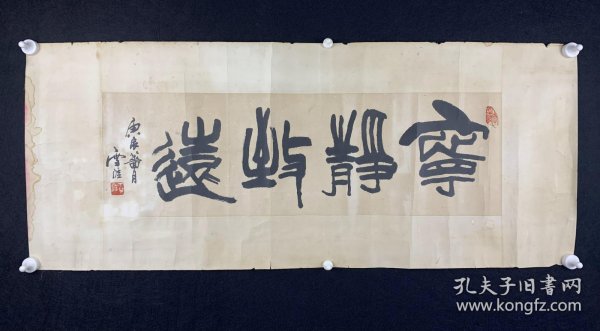 寧靜致遠
庚辰蒲月
孔夫子旧書网
www.kongfz.com